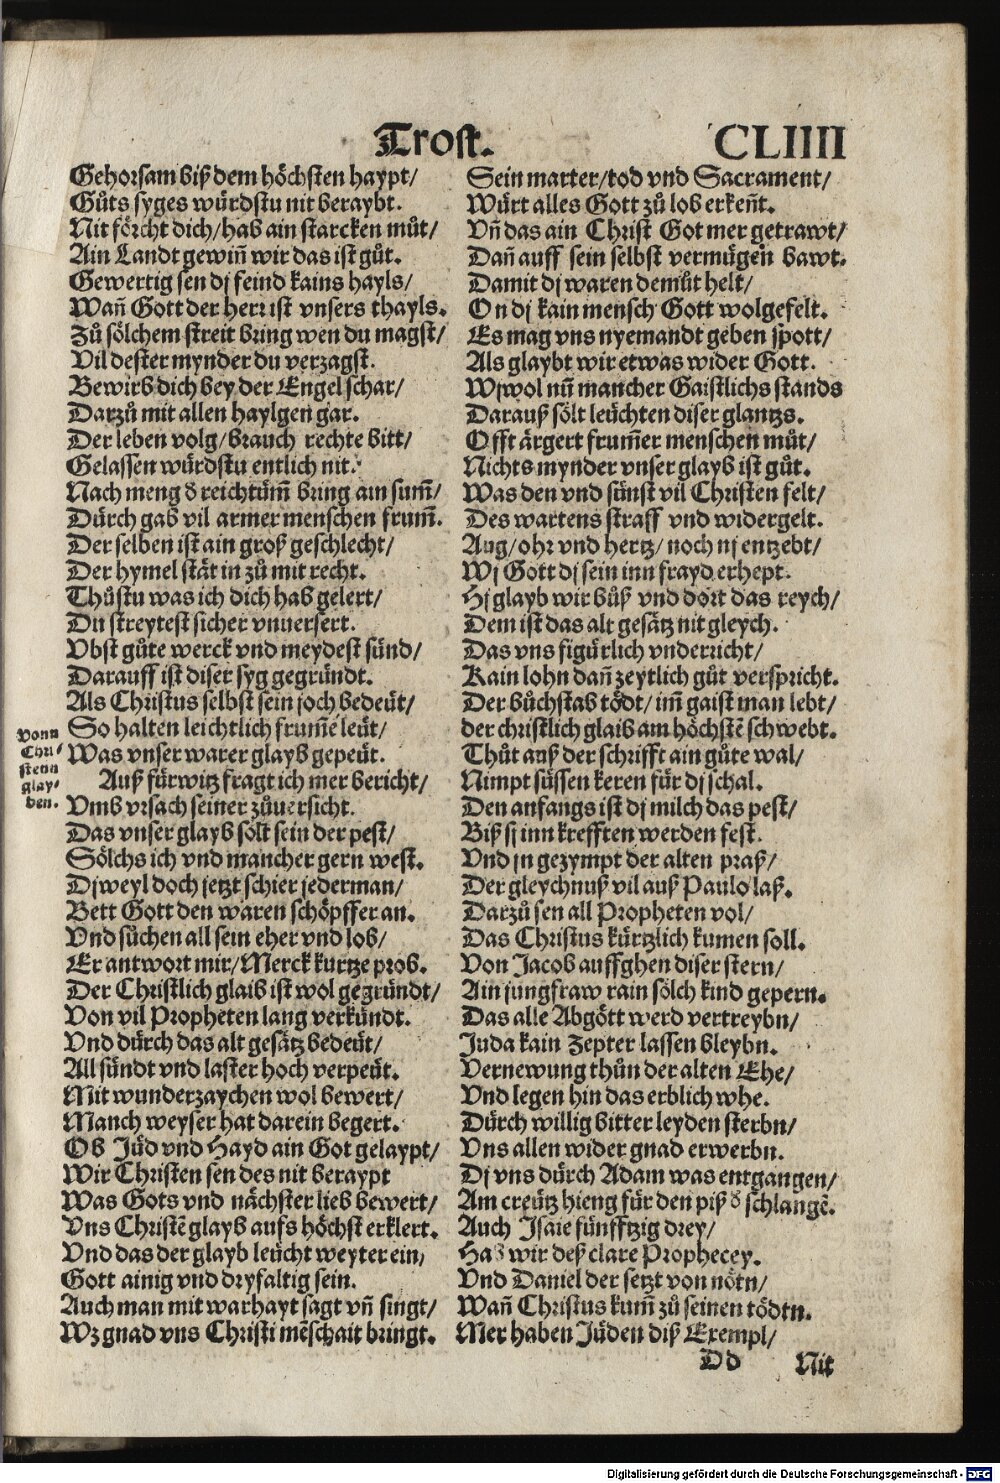 Trost.
CLIIII
Gehorsam biß dem höchsten haypt/
Gůts syges würdstu nit beraybt.
Nit förcht dich/hab ain starcken můt/
Ain Landt gewiñ wir das ist gůt.
Gewertig sen dj feind kains hayls/
Wañ Gott der herr ist vnsers thayls.
Zů sölchem streit bring wen du magst/
Vil dester mynder du verzagst.
Bewirb dich bey der Engel schar/
Darzů mit allen haylgen gar.
Der leben volg/brauch rechte bitt/
Gelassen würdstu entlich nit.
Nach meng ð reichtům̃ bring ain sum̃/
Dürch gab vil armer menschen frum̃.
Der selben ist ain groß geschlecht/
Der hymel stät in zů mit recht.
Thůstu was ich dich hab gelert/
Du streytest sicher vnuersert.
Vbst gůte werck vnd meydest sünd/
Darauff ist diser syg gegründt.
Als Christus selbst sein joch bedeüt/
So halten leichtlich frum̃e leüt/
Was vnser warer glayb gepeüt.
Vonn
Chri/
stenn
glay/
ben.
Auß fürwitz fragt ich mer bericht/
Vmb vrsach seiner zůuersicht.
Das vnser glayb sölt sein der pest/
Sölchs ich vnd mancher gern west.
Djweyl doch jetzt schier jederman/
Bett Gott den waren schöpffer an.
Vnd sůchen all sein eher vnd lob/
Er antwort mir/Merck kurtze prob.
Der Christlich glaib ist wol gegründt/
Von vil Propheten lang verkündt.
Vnd dürch das alt gesätz bedeüt/
All sündt vnd laster hoch verpeüt.
Mit wunderzaychen wol bewert/
Manch weyser hat darein begert.
Ob Jüd vnd Hayd ain Got gelaypt/
Wir Christen sen des nit beraypt
Was Gots vnd nächster lieb bewert/
Vns Christẽ glayb aufs höchst erklert.
Vnd das der glayb leücht weyter ein/
Gott ainig vnd dryfaltig sein.
Auch man mit warhayt sagt vñ singt/
Wz gnad vns Christi mẽschait bringt.
Sein marter/tod vnd Sacrament/
Würt alles Gott zů lob erkeñt.
Vñ das ain Christ Got mer getrawt/
Dañ auff sein selbst vermügen bawt.
Damit dj waren demůt helt/
On dj kain mensch Gott wolgefelt.
Es mag vns nyemandt geben spott/
Als glaybt wir etwas wider Gott.
Wjwol nũ mancher Gaistlichs stands
Darauß sölt leüchten diser glantzs.
Offt ärgert frum̃er menschen můt/
Nichts mynder vnser glayb ist gůt.
Was den vnd sünst vil Christen felt/
Des wartens straff vnd widergelt.
Aug/ohr vnd hertz/noch nj entzebt/
Wj Gott dj sein inn frayd erhept.
Hj glayb wir bůß vnd dort das reych/
Dem ist das alt gesätz nit gleych.
Das vns figürlich vnderricht/
Kain lohn dañ zeytlich gůt verspricht.
Der bůchstab tödt/im̃ gaist man lebt/
der christlich glaib am höchstẽ schwebt.
Thůt auß der schrifft ain gůte wal/
Nimpt süssen keren für dj schal.
Den anfangs ist dj milch das pest/
Biß sj inn krefften werden fest.
Vnd jn gezympt der alten praß/
Der gleychnuß vil auß Paulo laß.
Darzů sen all Propheten vol/
Das Christus kürtzlich kumen soll.
Von Jacob auffghen diser stern/
Ain jungfraw rain sölch kind gepern.
Das alle Abgött werd vertreybn/
Juda kain Zepter lassen bleybn.
Vernewung thůn der alten Ehe/
Vnd legen hin das erblich whe.
Dürch willig bitter leyden sterbn/
Vns allen wider gnad erwerbn.
Dj vns dürch Adam was entgangen/
Am creütz hieng für den piß ð schlangẽ.
Auch Isaie fünfftzig drey/
Hab wir deß clare Prophecey.
Vnd Daniel der setzt von nötn/
Wañ Christus kum̃ zů seinen tödtn.
Mer haben Jüden diß Exempl/
Dd
Nit
Digitalisierung gefördert durch die Deutsche Forschungsgemeinschaft - DFG